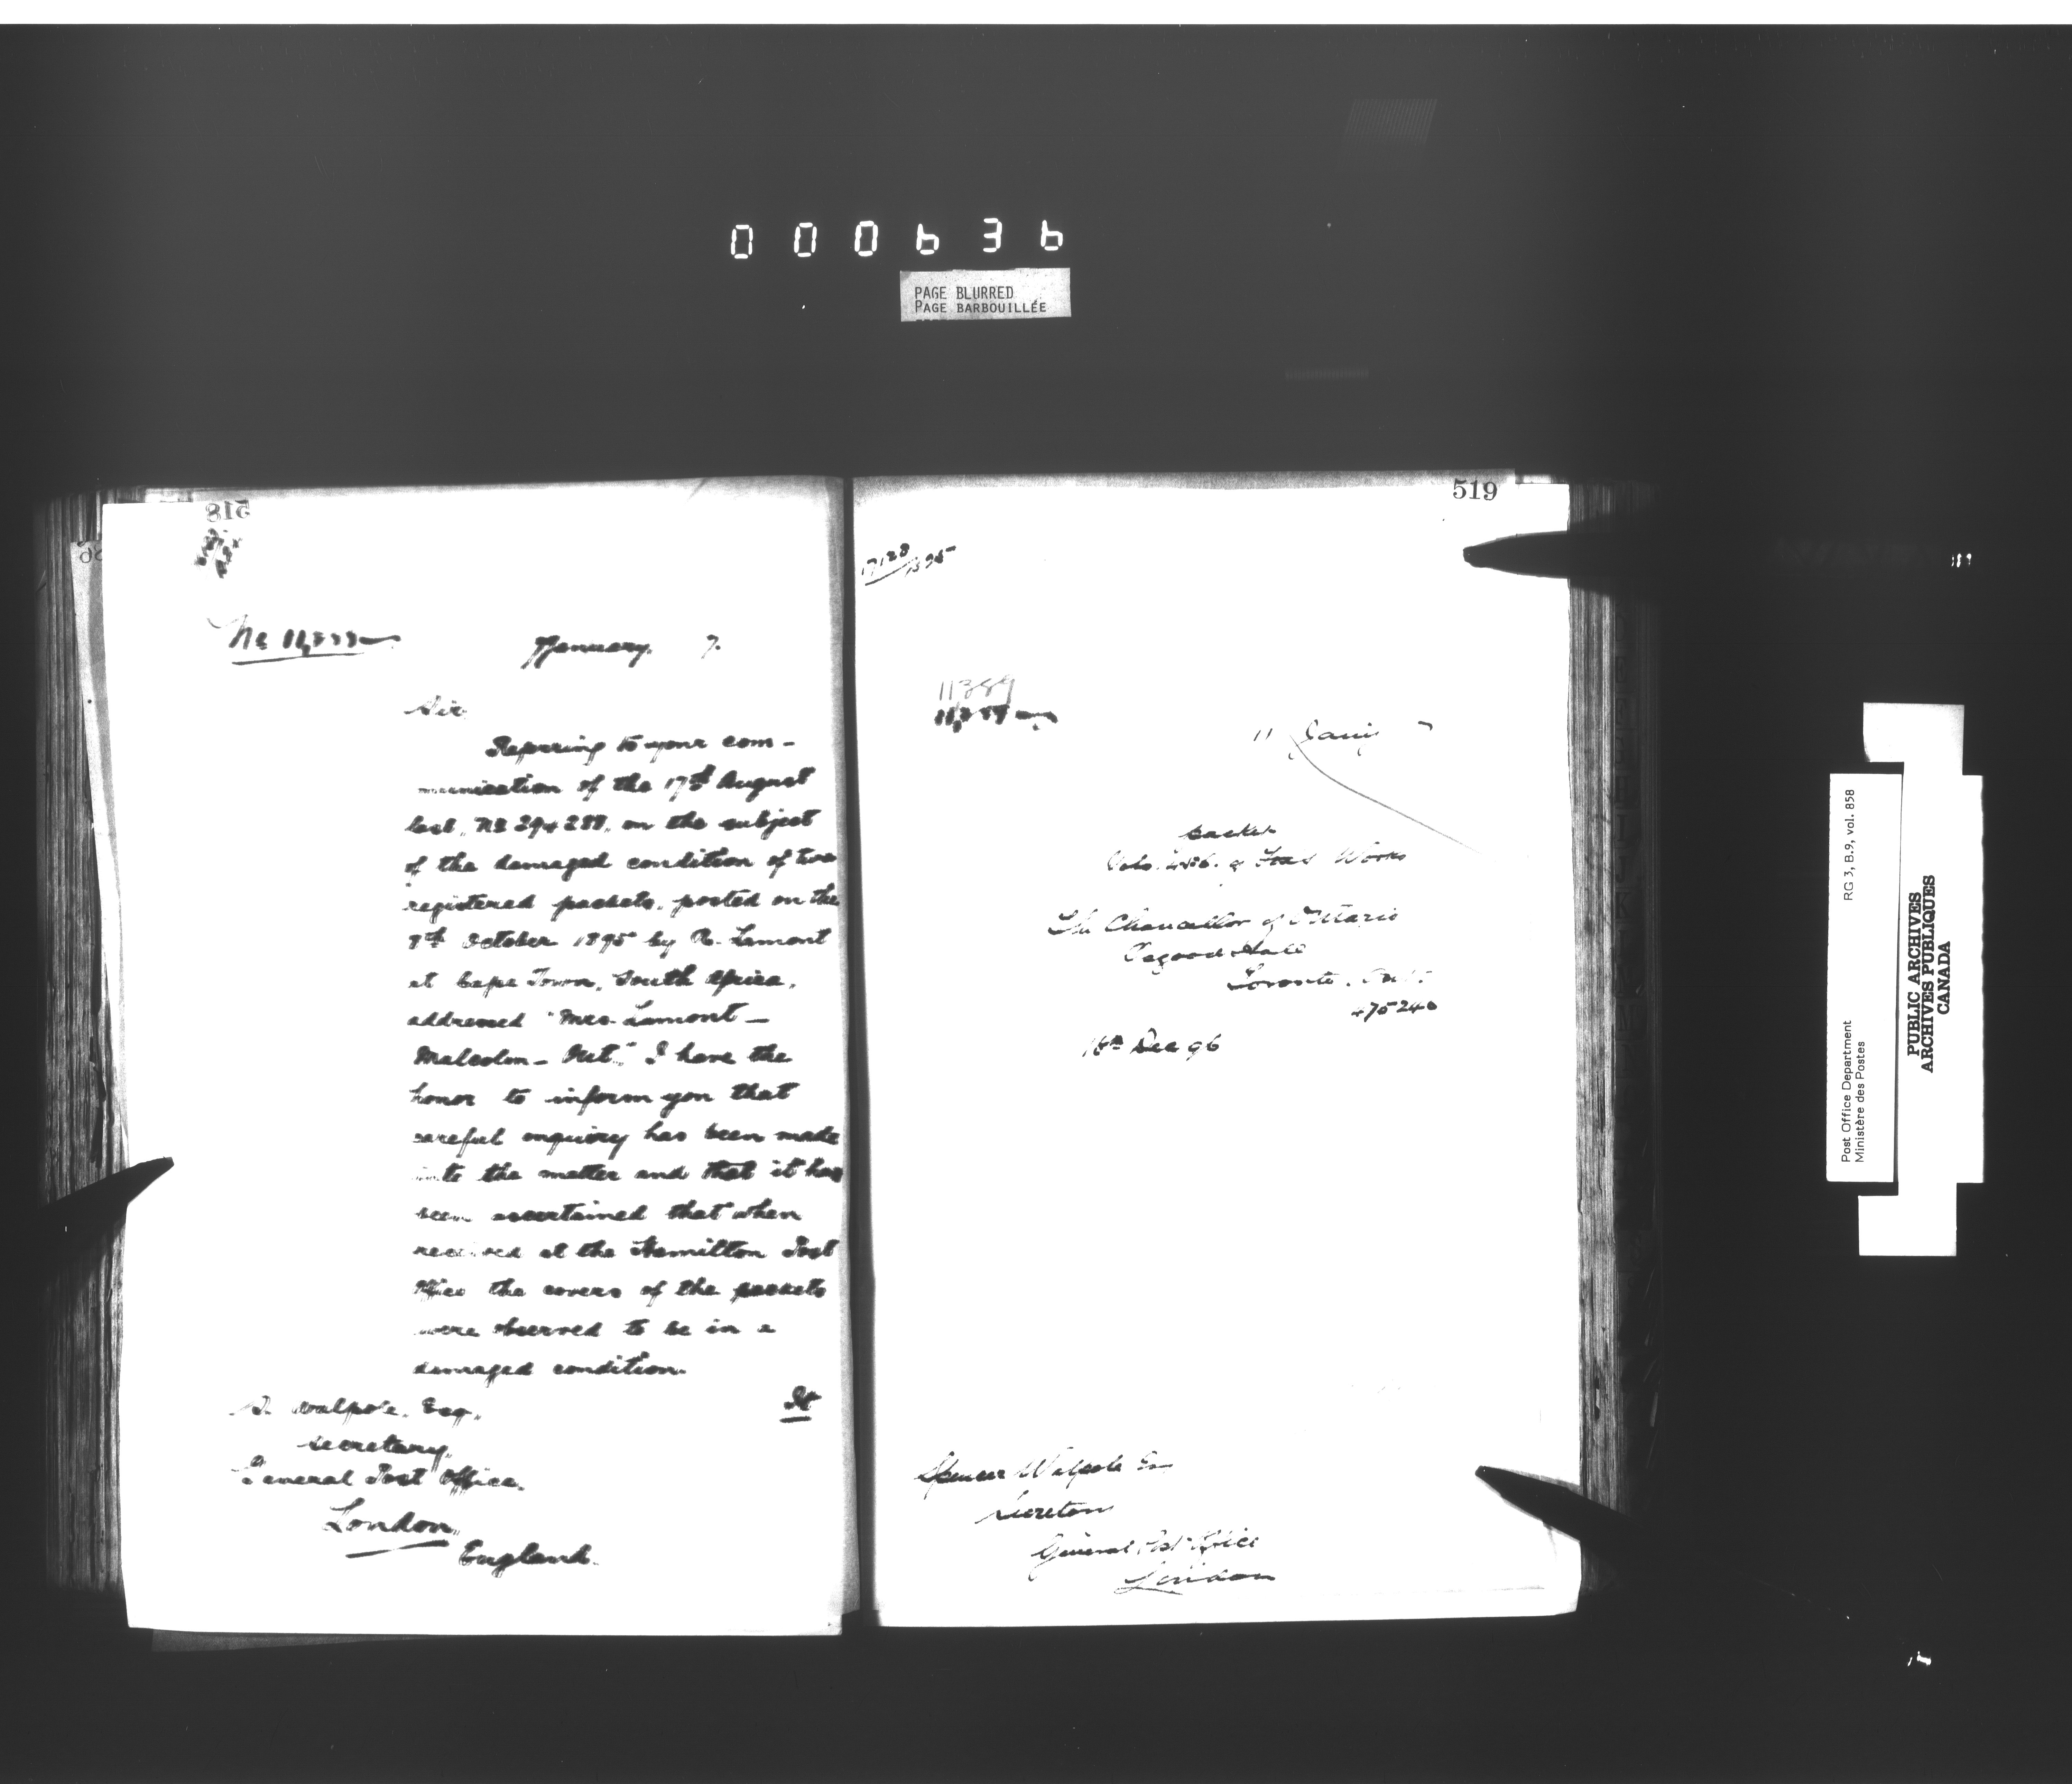 000636
PAGE BLURRED
PAGE BARBOUILLÉE
518
January 7.
Sir,
Referring to your com-
munication of the 17th August
last, No 294288, on the subject
of the damaged condition of two
registered packets, posted on the
8th October 1895 by R. Lamont
at Cape Town, South Africa,
addressed "Mrs. Lamont—
Malcolm— Ont." I have the
honor to inform you that
careful enquiry has been made
into the matter and that it has
been ascertained that when
received at the Hamilton Post
Office the covers of the packets
were observed to be in a
damaged condition.
It
S. Walpole, Esq,
Secretary,
General Post Office,
London,
England.
519
11389
11 Jany 7
packet
The Chancellor of Ontario
Osgoode Hall
Toronto, Ont.
475240
16th Dec 96
Spencer Walpole Esq
Secretary
General Post Office
London
Post Office Department RG 3, B.9, vol. 858
Ministère des Postes
PUBLIC ARCHIVES
ARCHIVES PUBLIQUES
CANADA